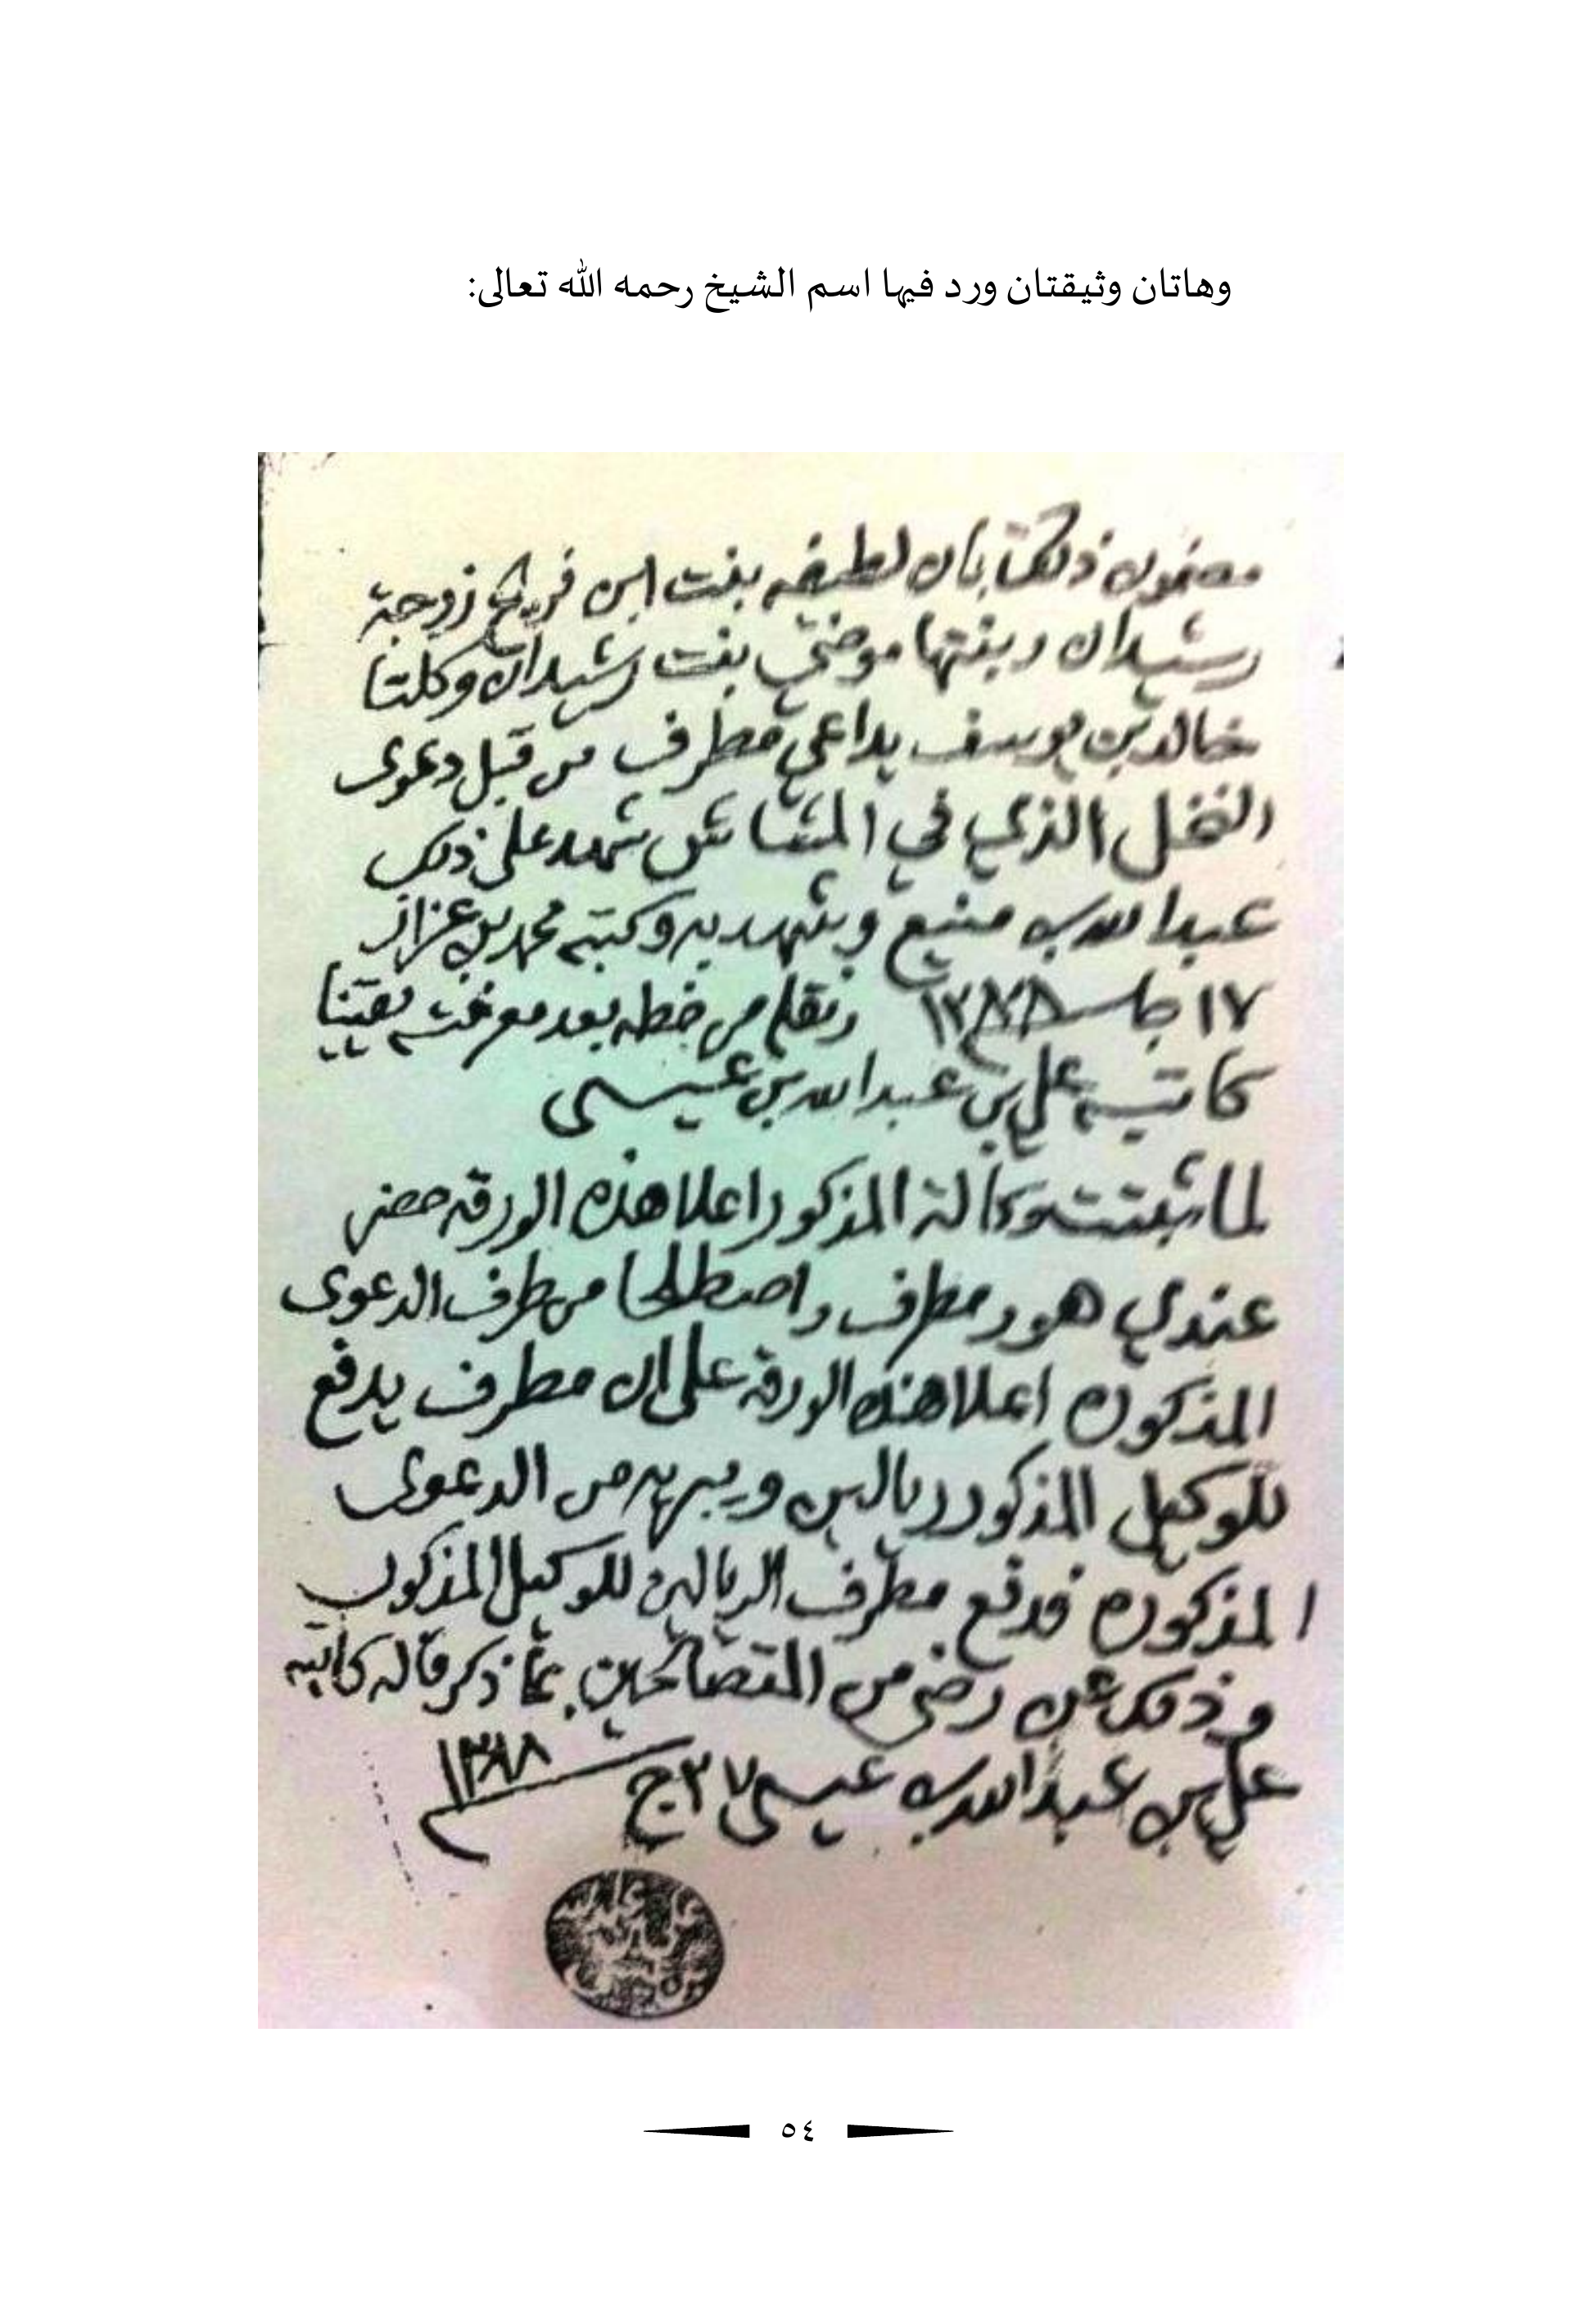 وهاتان وثيقتان ورد فيها اسم الشيخ رحمه الله تعالى:
مضمون ذلك بان لطيفه بنت ابن فريح زوجة
رشيدان وبنتها موضي بنت رشيدان وكلتا
خالد بن يوسف يداعي مطرف من قبل دعوى
النخل الذي في المشاش شهد على ذلك
عبدالله بن منيع وشهد به وكتبه محمد بن عزاز
١٧ جا ١٢٨٨ ونقله من خطه بعد معرفته يقينا
كاتبه علي بن عبدالله بن عيسى
لما ثبتت وكالة المذكور اعلا هذه الورقه حضر
عندي هو ومطرف واصطلحا من طرف الدعوى
المذكوره اعلا هذه الورقه على ان مطرف يدفع
للوكيل المذكور ريالين ويبريه من الدعوى
المذكوره فدفع مطرف الريالين للوكيل المذكور
وذلك عن رضى من المتصالحين بما ذكر قاله كاتبه
علي بن عبدالله بن عيسى ٢٧ ج
٥٤